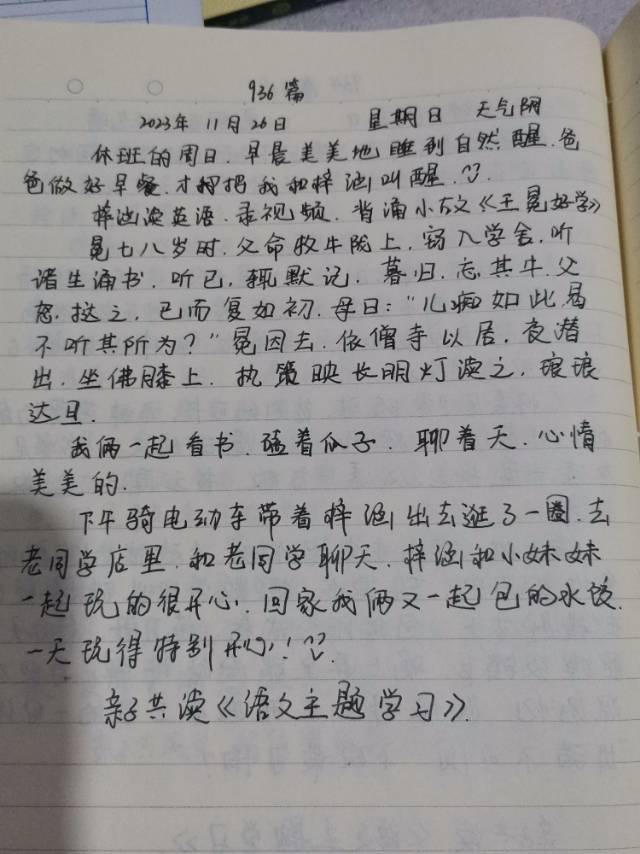 936篇
2023年11月26日 星期日 天气阴
休班的周日.早晨美美地睡到自然醒.爸
爸做好早餐.才把我和梓涵叫醒.
梓涵读英语.录视频.背诵小古文《王冕好学》
冕七八岁时.父命牧牛陇上.窃入学舍.听
诸生诵书.听已.辄默记.暮归.忘其牛.父
怒.挞之.已而复如初.母曰:“儿痴如此.曷
不听其所为?”冕因去.依僧寺以居.夜潜
出.坐佛膝上.执策映长明灯读之.琅琅
达旦.
我俩一起看书.嗑着瓜子.聊着天.心情
美美的.
下午骑电动车带着梓涵出去逛了一圈.去
老同学店里.和老同学聊天.梓涵和小妹妹
一起玩的很开心.回家我俩又一起包的水饺.
一天玩得特别开心!
亲子共读《语文主题学习》.